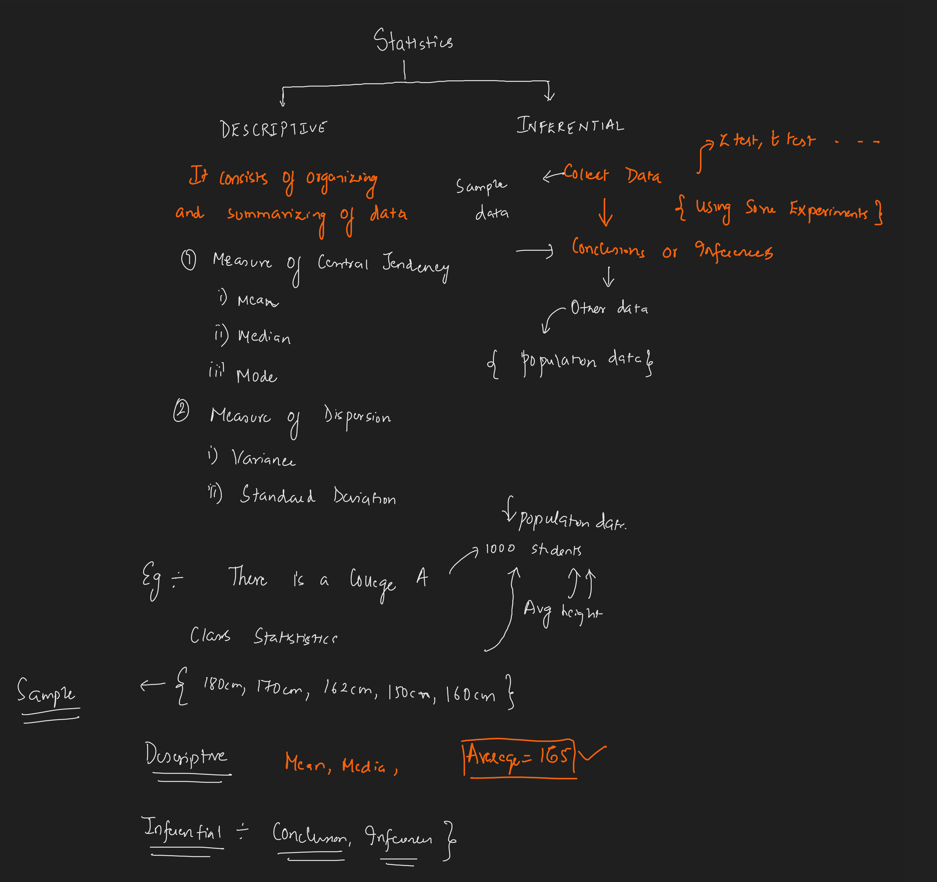 Statistics
DESCRIPTIVE
INFERENTIAL
It consists of organizing
and summarizing of data
① Measure of Central Tendency
i) Mean
ii) Median
iii) Mode
② Measure of Dispersion
i) Variance
ii) Standard Deviation
Z test, t test - - - -
Sample
data
Collect Data
{ Using Some Experiments }
Conclusions or Inferences
Other data
{ population data }
population data.
1000 students
Avg height
Eg ÷ There is a College A
Class Statististics
Sample
{ 180cm, 170cm, 162cm, 150cm, 160cm }
Descriptive Mean, Media, Average = 165
Inferential ÷ Conclusion, Inferences }